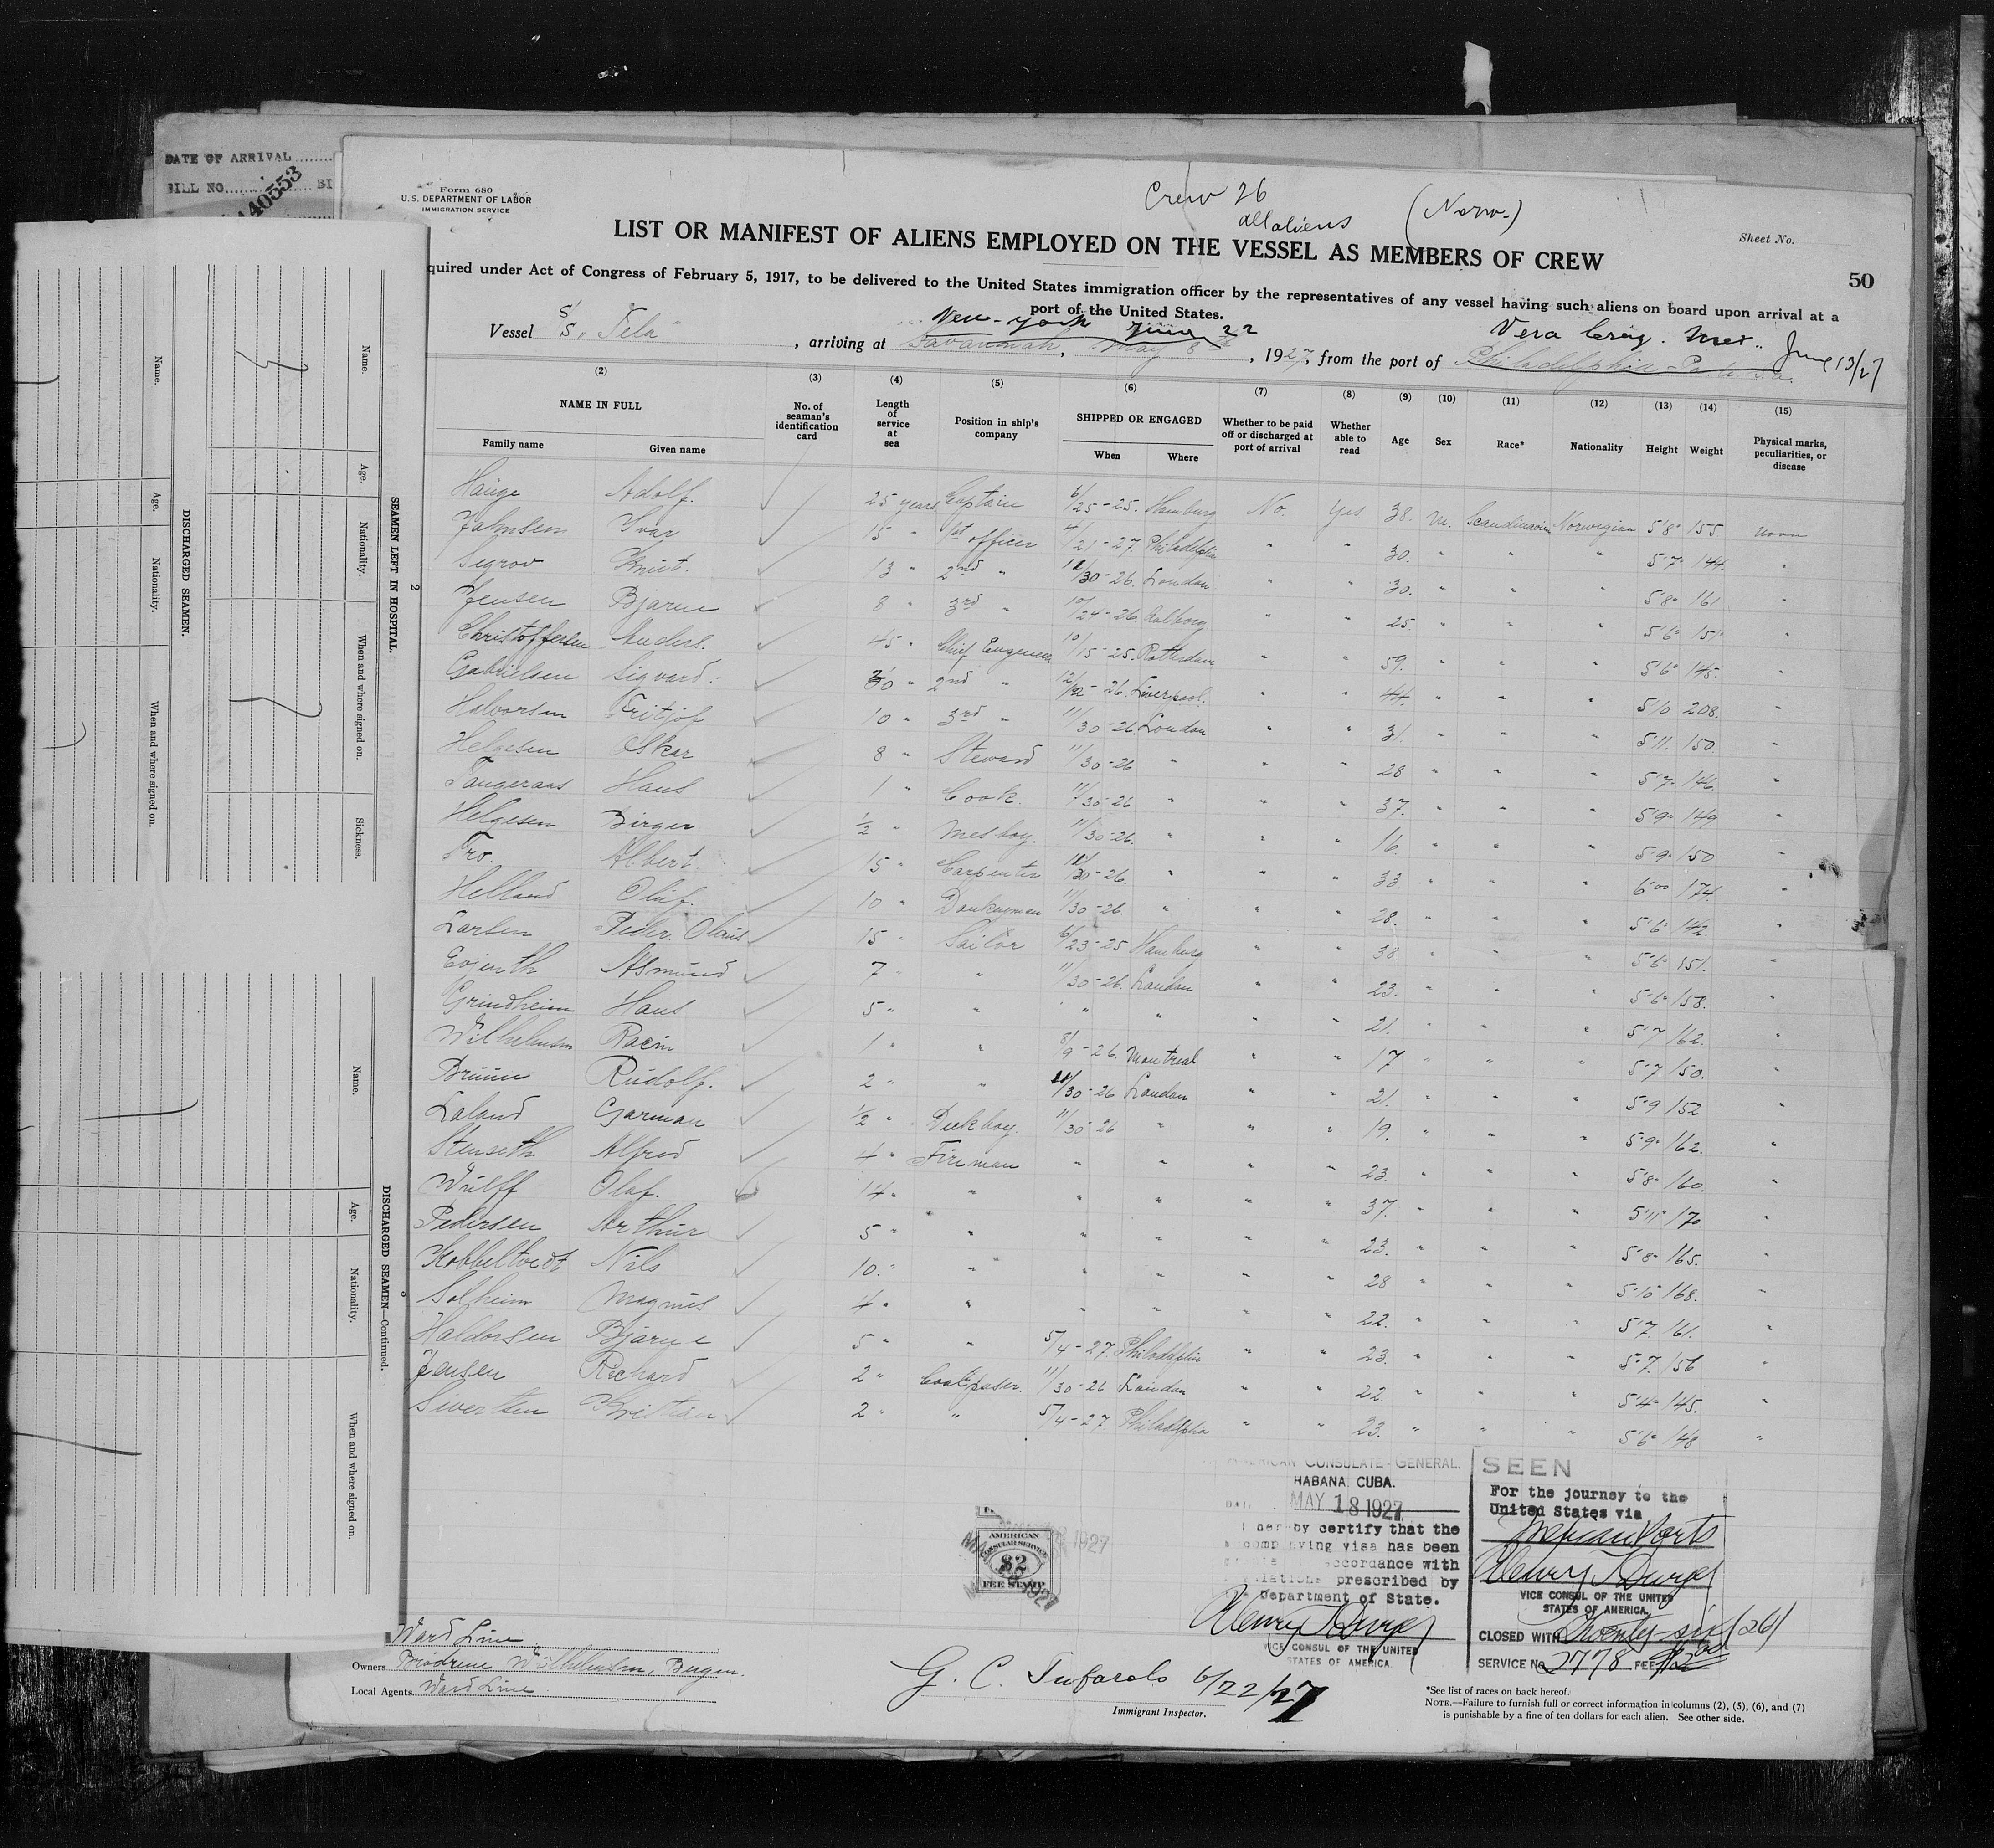 DATE OF ARRIVAL
BILL NO. BI
140553
Form 680
U. S. DEPARTMENT OF LABOR
IMMIGRATION SERVICE
Crew 26
all aliens
(Norw.)
LIST OR MANIFEST OF ALIENS EMPLOYED ON THE VESSEL AS MEMBERS OF CREW
Sheet No.
50
quired under Act of Congress of February 5, 1917, to be delivered to the United States immigration officer by the representatives of any vessel having such aliens on board upon arrival at a
port of the United States.
New-York June 22
Vera Cruz. Mex.. June 13/27
Vessel S/S. "Tela" , arriving at Savannah, May 8th, 1927, from the port of Philadelphia-Pa.
(2) (3) (4) (5) (6) (7) (8) (9) (10) (11) (12) (13) (14) (15)
NAME IN FULL No. of seaman's identification card Length of service at sea Position in ship's company SHIPPED OR ENGAGED Whether to be paid off or discharged at port of arrival Whether able to read Age Sex Race* Nationality Height Weight Physical marks, peculiarities, or disease
Family name Given name When Where
Hauge Adolf. 25 years Captain 6/25-25. Hamburg No. Yes 38. m. Scandinavian Norwegian 5'8" 155 noon
Johnsen Ivar 15 " 1st officer 4/21-27. Philadelphia " " 30. " " " 5'7" 144. "
Segrov Knut. 13 " 2nd " 11/30-26. London " " 30. " " " 5'8" 161 "
Jensen Bjarne 8 " 3rd " 10/24-26. Aalborg " " 25. " " " 5'6" 151 "
Christoffersen Anders. 45 " Chief Engineer 10/15-25. Rotterdam " " 59. " " " 5'6" 145. "
Gabrielsen Sigvard. 20 " 2nd " 12/12-26. Liverpool. " " 44. " " " 5'10 208. "
Halvorsen Fritjof 10 " 3rd " 11/30-26. London " " 31. " " " 5'11. 150. "
Helgesen Oskar 8 " Steward 11/30-26 " " " 28 " " " 5'7" 146. "
Tangeraas Hans 1 " Cook. 11/30-26 " " " 37. " " " 5'9" 149. "
Helgesen Birger 1/2 " Mesboy. 11/30-26. " " " 16. " " " 5'9" 150 "
Tro. Albert. 15 " Carpenter 11/30-26. " " " 33. " " " 6'00 174. "
Helland Oluf. 10 " Donkeyman 11/30-26. " " " 28. " " " 5'6" 142. "
Larsen Peder Olaus 15 " Sailor 6/23-25 Hamburg " " 38 " " " 5'6" 151. "
Evjenth Asmund 7 " " 11/30-26. London " " 23. " " " 5'6" 158. "
Grindheim Hans 5 " " " " " " 21. " " " 5'7 162. "
Wilhelmsen 1 " " 8/9-26. Montreal " " 17. " " " 5'7 150. "
Bruun Rudolf. 2 " " 11/30-26 London " " 21. " " " 5'9 152 "
Laland Garman 1/2 " Deckboy. 11/30-26 " " " 19. " " " 5'9" 162. "
Stenseth Alfred 4 " Fireman " " " " 23. " " " 5'8" 160. "
Wulff Olaf. 14 " " " " " " 37. " " " 5'11" 170 "
Pedersen Arthur 5 " " " " " " 23. " " " 5'8" 165. "
Kobbeltvedt Nils 10. " " " " " " 28 " " " 5'10 168. "
Solheim Magnus 4 " " " " " " 22. " " " 5'7. 161. "
Haldorsen Bjarne 5 " " 5/4-27. Philadelphia " " 23. " " " 5'7. 156 "
Jensen Richard 2 " Coalpaser. 11/30-26 London " " 22. " " " 5'4" 145. "
Sivertsen Kristian 2 " " 5/4-27 Philadelphia " " 23. " " " 5'6" 148 "
AMERICAN CONSULATE-GENERAL.
HABANA, CUBA.
MAY 18 1927
I hereby certify that the
accompanying visa has been
accordance with
regulations prescribed by
Department of State.
VICE CONSUL OF THE UNITED
STATES OF AMERICA
SEEN
For the journey to the
United States via
Mexican Ports
VICE CONSUL OF THE UNITED
STATES OF AMERICA.
CLOSED WITH Twenty-six (26)
SERVICE No 2778 FEE $2.00
AMERICAN
CONSULAR SERVICE
$2
FEE STAMP
Ward Line
Owners Brödrene Wilhelmsen, Bergen.
Local Agents Ward Line
G. C. Tufarolo 6/22/27
Immigrant Inspector.
*See list of races on back hereof.
NOTE.—Failure to furnish full or correct information in columns (2), (5), (6), and (7)
is punishable by a fine of ten dollars for each alien. See other side.
2
SEAMEN LEFT IN HOSPITAL.
Name. Age. Nationality. When and where signed on. Sickness.
DISCHARGED SEAMEN.
Name. Age. Nationality. When and where signed on.
3
DISCHARGED SEAMEN—Continued.
Name. Age. Nationality. When and where signed on.